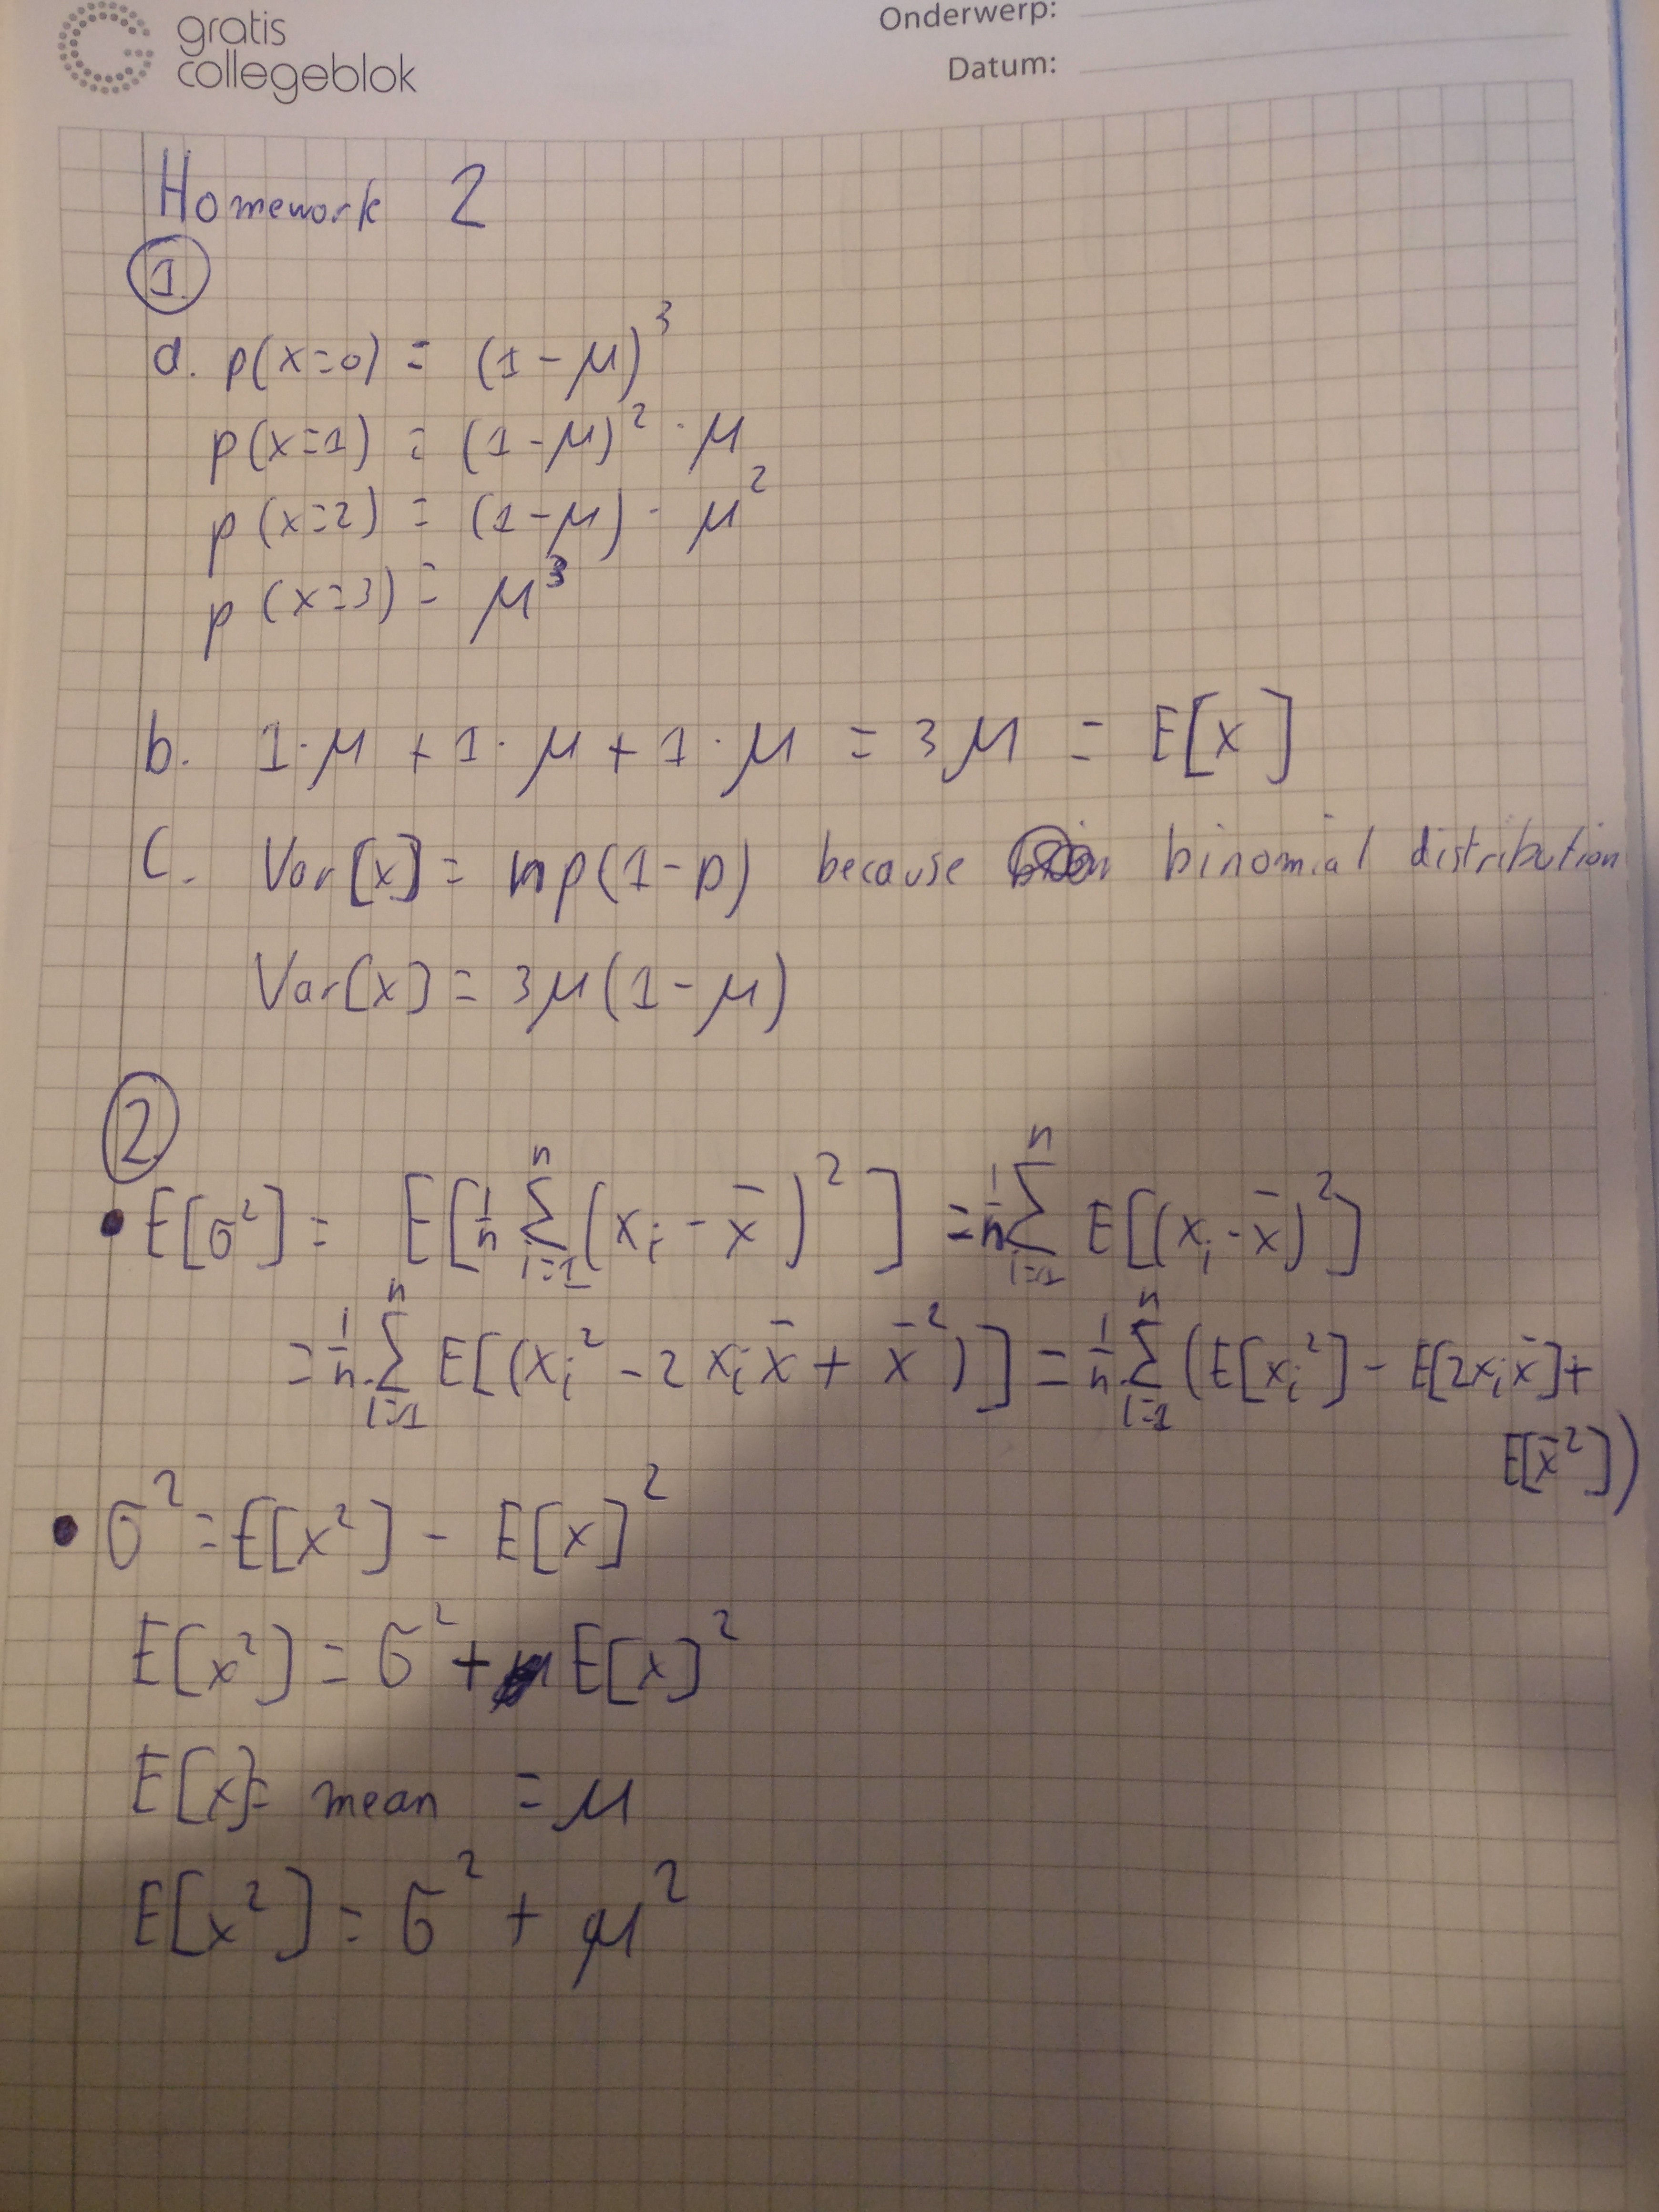 gratis
collegeblok
Onderwerp:
Datum:
Homework 2
1.
a. p(x=0) = (1-μ)³
p(x=1) = (1-μ)² · μ
p(x=2) = (1-μ) · μ²
p(x=3) = μ³
b. 1·μ + 1·μ + 1·μ = 3μ = E[x]
c. Var[x] = np(1-p) because binomial distribution
Var[x] = 3μ(1-μ)
2.
• E[σ²] = E[1/n Σᵢ₌₁ⁿ (xᵢ - x̄)²] = 1/n Σᵢ₌₁ⁿ E[(xᵢ - x̄)²]
= 1/n Σᵢ₌₁ⁿ E[(xᵢ² - 2xᵢx̄ + x̄²)] = 1/n Σᵢ₌₁ⁿ (E[xᵢ²] - E[2xᵢx̄] +
E[x̄²])
• σ² = E[x²] - E[x]²
E[x²] = σ² + E[x]²
E[x] = mean = μ
E[x²] = σ² + μ²